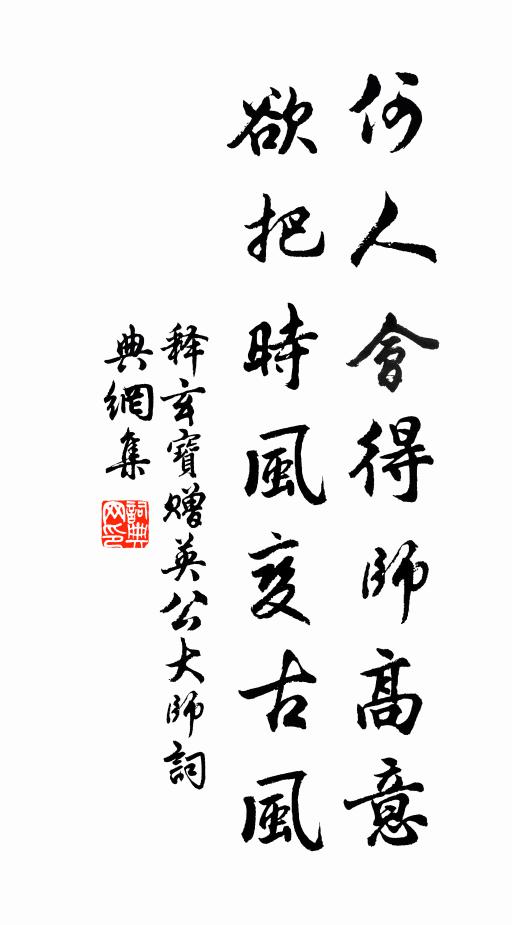 何人會得師高意
欲把時風變古風
釋玄寶贈英公大師詞
典網集
詞典
网印